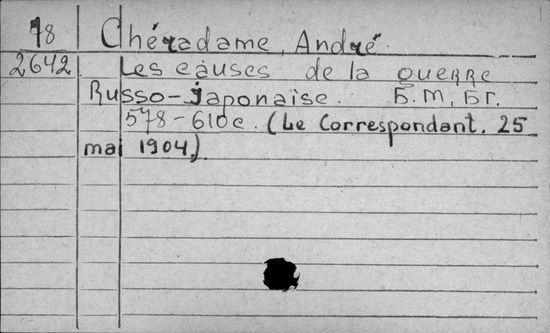 18 Chéradame, André.
2642. Les causes de la guerre
Russo-Japonaise. Б.м, Бг.
578-610c. (Le Correspondant. 25
mai 1904.).